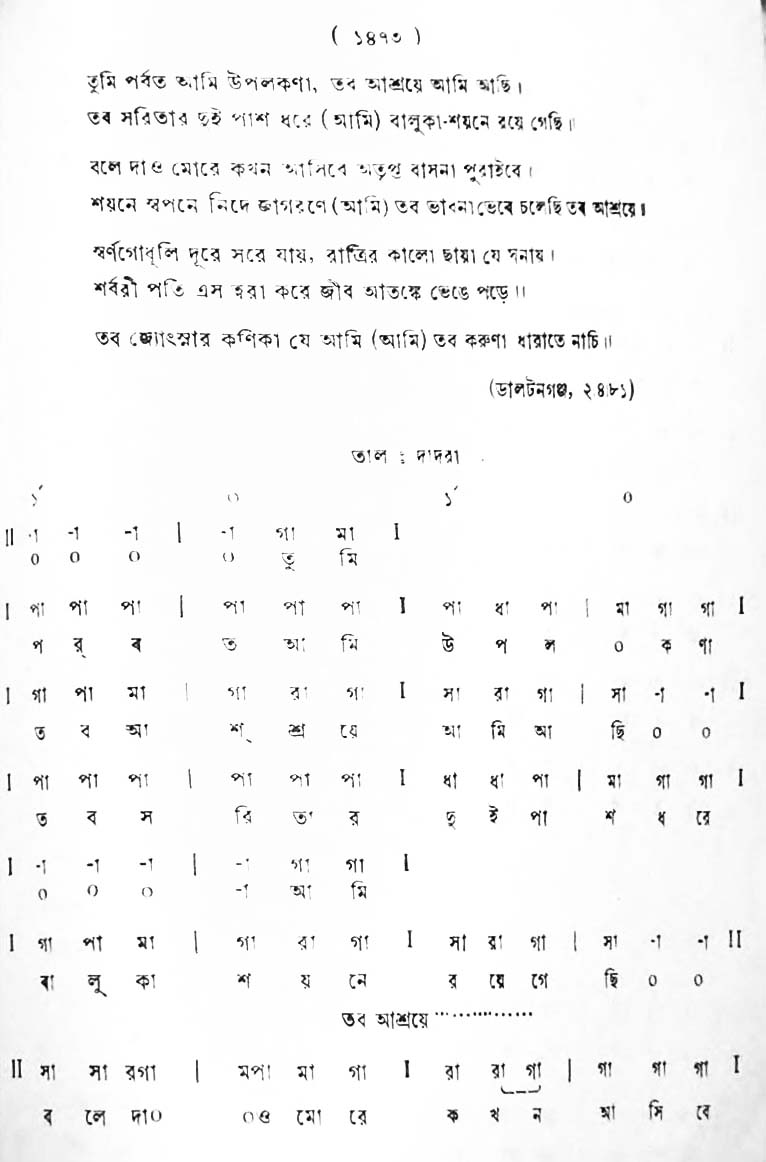 ( ১৪৭৩ )
তুমি পর্বত আমি উপলকণা, তব আশ্রয়ে আমি আছি।
তব সরিতার দুই পাশ ধরে (আমি) বালুকা-শয়নে রয়ে গেছি॥
বলে দাও মোরে কখন আসিবে অতৃপ্ত বাসনা পুরাইবে।
শয়নে স্বপনে নিদে জাগরণে (আমি) তব ভাবনা ভেবে চলেছি তব আশ্রয়ে॥
স্বর্ণগোধূলি দূরে সরে যায়, রাত্রির কালো ছায়া যে ঘনায়।
শর্বরী পতি এস ত্বরা করে জীব আতঙ্কে ভেঙে পড়ে॥
তব জ্যোৎস্নার কণিকা যে আমি (আমি) তব করুণা ধারাতে নাচি॥
(ডালটনগঞ্জ, ২৪৮১)
তাল : দাদরা
১´ ০ ১´ ০
II -া -া -া | -া গা মা I
০ ০ ০ ০ তু মি
I পা পা পা | পা পা পা I পা ধা পা | মা গা গা I
প র্ ব ত আ মি উ প ল ০ ক ণা
I গা পা মা | গা রা গা I সা রা গা | সা -া -া I
ত ব আ শ্ শ্র য়ে আ মি আ ছি ০ ০
I পা পা পা | পা পা পা I ধা ধা পা | মা গা গা I
ত ব স রি তা র দু ই পা শ ধ রে
I -া -া -া | -া গা গা I
০ ০ ০ -া আ মি
I গা পা মা | গা রা গা I সা রা গা | সা -া -া II
বা লু কা শ য় নে র য়ে গে ছি ০ ০
তব আশ্রয়ে ···············
II সা সা রগা | মপা মা গা I রা রা গা | গা গা গা I
ব লে দা০ ০ও মো রে ক খ ন আ সি বে